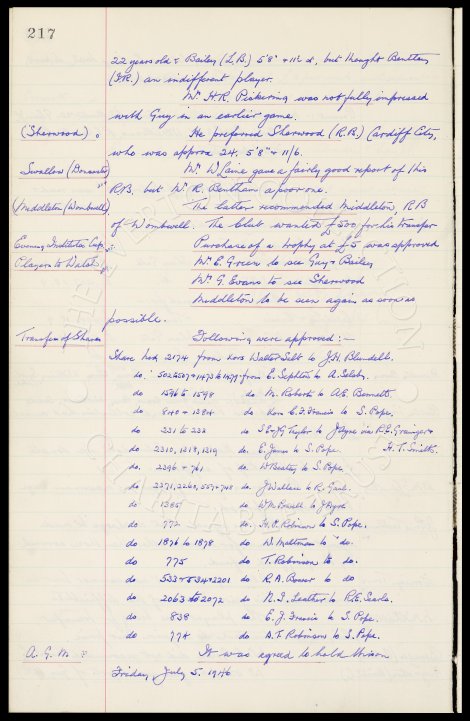 217
22 years old & Bailey (L.B.) 5'8" & 11½ st, but thought Bentham
(I.R.) an indifferent player.
Mr. H.R. Pickering was not fully impressed
with Guy in an earlier game.
(Sherwood) He preferred Sherwood (R.B.) Cardiff City,
who was approx 24. 5'8" & 11/6.
Swallow (Doncaster) Mr. W. Laine gave a fairly good report of this
R/B. but Mr. R. Bentham a poor one.
Middleton (Wombwell) The latter recommended Middleton, R/B
of Wombwell. The Club wanted £500 for his transfer
Evening Institutes Cup Purchase of a trophy at £5 was approved
Players to Watch Mr. E. Green to see Guy & Bailey
Mr. G. Evans to see Sherwood
Middleton to be seen again as soon as
possible.
Transfer of Shares Following were approved:-
Share No. 2174 from Walter Salt to J.H. Blundell.
do. 502 & 507 & 1473 to 1479 from E. Sephton to A. Selsby.
do 1596 to 1598 do M. Roberts to A.E. Bennett
do 840 & 1384 do C.F. Francis to S. Pope.
do 231 to 233 do S.E. & J.G. Taylor to J. Pyke via R.E. Grainger &
H.T. Smith.
do 2310, 1318, 1319 do E. Jones to S. Pope.
do 2296 & 761 do W. Beatty to S. Pope.
do 2271, 2260, 557 & 748 do J. Wallace to R. Gard.
do 1385 do W.M. Powell to J. Pyke
do 772 do H.P. Robinson to S. Pope.
do 1876 to 1878 do W. Maltman to do.
do 775 do T. Robinson to do.
do 533 & 534 & 2201 do R.A. Bower to do
do 2063 to 2072 do N.I. Leather to R.E. Searle.
do 838 do E.J. Francis to S. Pope.
do 774 do A.T. Robinson to S. Pope.
A. G. M. It was agreed to hold this on
Friday, July 5. 1946